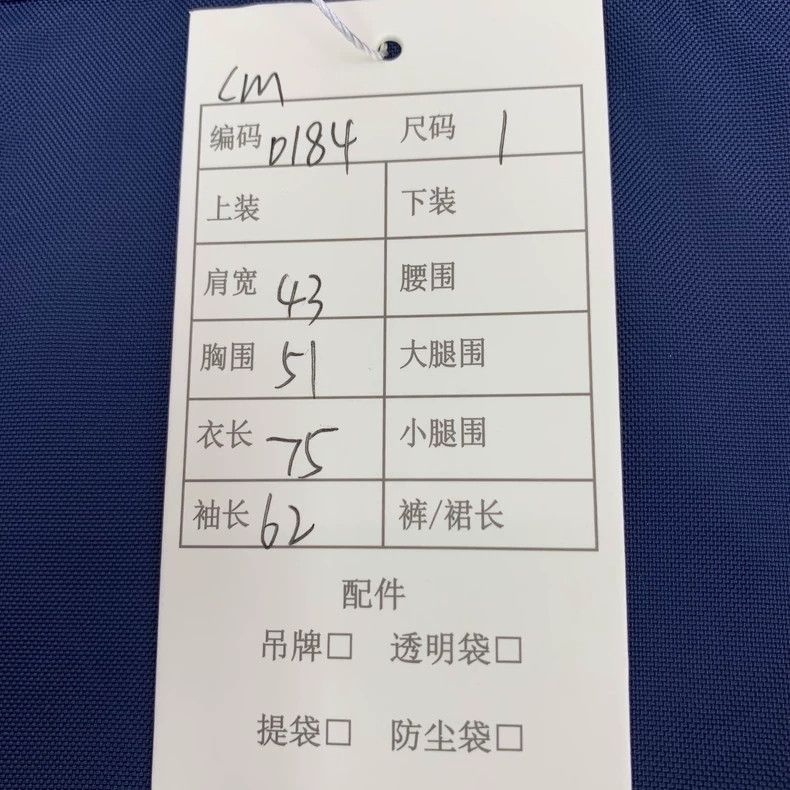 CM
编码 D184 尺码 1
上装 下装
肩宽 43 腰围
胸围 51 大腿围
衣长 75 小腿围
袖长 62 裤/裙长
配件
吊牌□ 透明袋□
提袋□ 防尘袋□